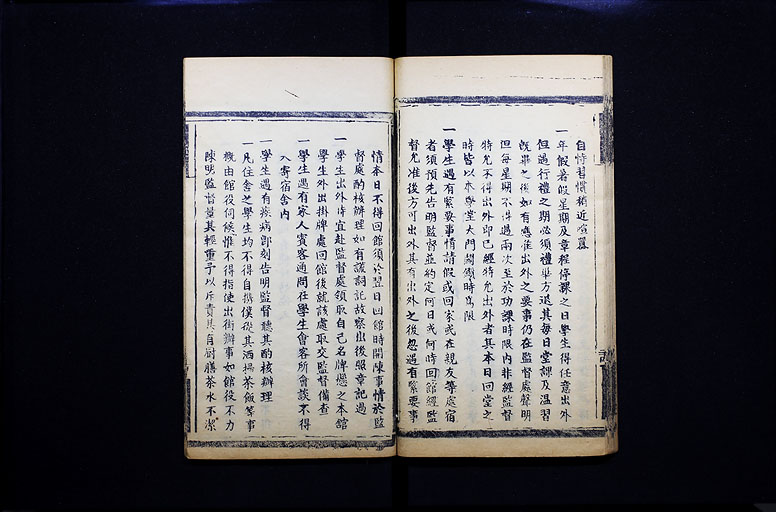 自恃習慣稍近喧囂
一年假暑假星期及章程停課之日學生得任意出外
但遇行禮之期必須禮畢方退其每日堂課及溫習
旣畢之後如有應准出外之要事仍在監督處聲明
但每星期不得過兩次至於功課時限內非經監督
特允不得出外卽已經特允出外者其本日回堂之
時皆以本學堂大門關鎖時爲限
一學生遇有緊要事情請假或回家或在親友等處宿
者須預先告明監督並約定何日或何時回館經監
督允准後方可出外其有出外之後忽遇有緊要事
情本日不得回館須於翌日回館時開陳事情於監
督處酌核辦理如有謊詞託故察出後照章記過
一學生出外時宜赴監督處領取自己名牌懸之本館
學生外出掛牌處回館後就該處取交監督備查
一學生遇有家人賓客過問在學生會客所會談不得
入寄宿舍內
一學生遇有疾病卽刻告明監督聽其酌核辦理
一凡住舍之學生均不得自携僕從其洒掃茶飯等事
概由館役伺候惟不得指使出街辦事如館役不力
陳明監督量其輕重予以斥責其有厨膳茶水不潔